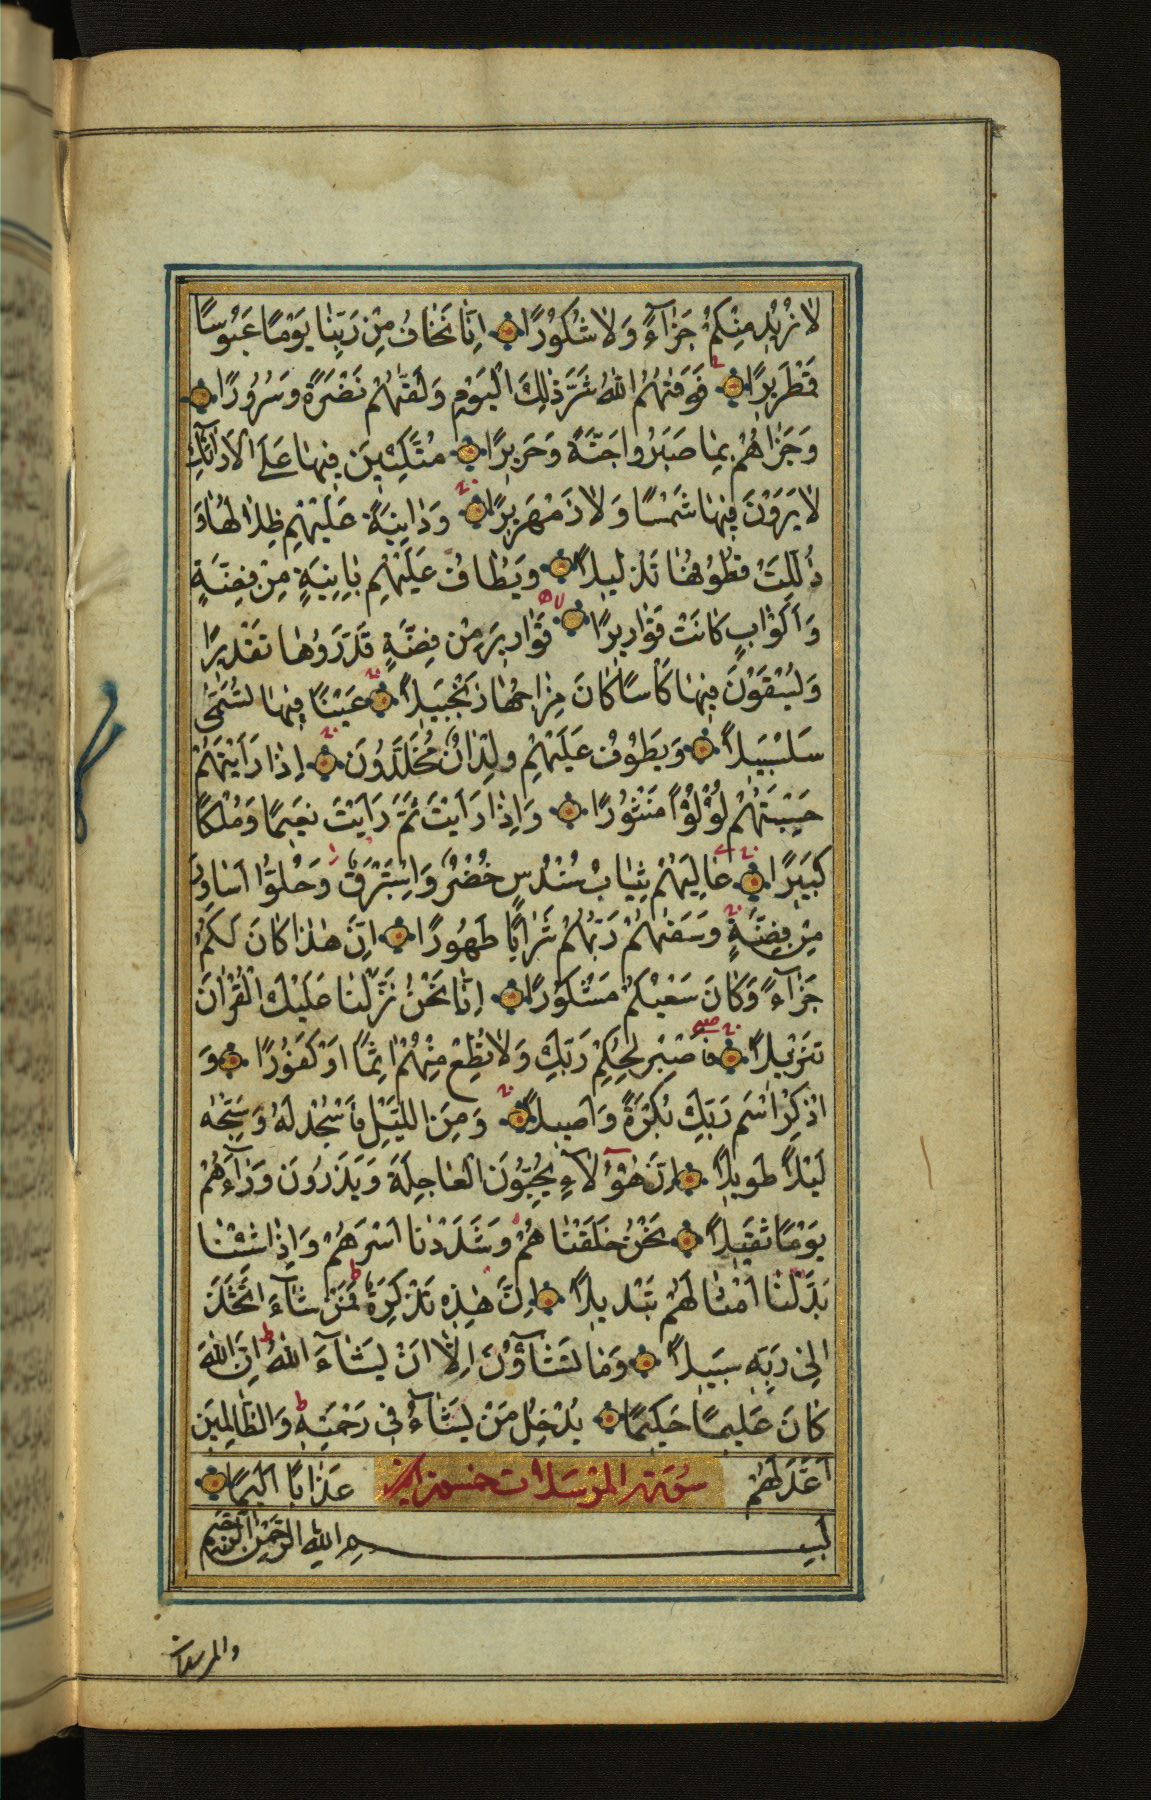 لا نُرِيدُ مِنْكُمْ جَزَآءً وَلا شُكُورًا اِنَّا نَخَافُ مِنْ رَبِّنَا يَوْمًا عَبُوسًا
قَمْطَرِيرًا فَوَقٰهُمُ اللهُ شَرَّ ذٰلِكَ الْيَوْمِ وَلَقّٰهُمْ نَضْرَةً وَسُرُورًا
وَجَزٰاهُمْ بِمَا صَبَرُوا جَنَّةً وَحَرِيرًا مُتَّكِئِينَ فِيهَا عَلَى الْاَرَائِكِ
لا يَرَوْنَ فِيهَا شَمْسًا وَلا زَمْهَرِيرًا وَدَانِيَةً عَلَيْهِمْ ظِلالُهَا وَ
ذُلِّلَتْ قُطُوفُهَا تَذْلِيلاً وَيُطَافُ عَلَيْهِمْ بِاٰنِيَةٍ مِنْ فِضَّةٍ
وَاَكْوَابٍ كَانَتْ قَوَارِيرًا قَوَارِيرَ مِنْ فِضَّةٍ قَدَّرُوهَا تَقْدِيرًا
وَيُسْقَوْنَ فِيهَا كَأْسًا كَانَ مِزَاجُهَا زَنْجَبِيلاً عَيْنًا فِيهَا تُسَمّٰى
سَلْسَبِيلاً وَيَطُوفُ عَلَيْهِمْ وِلْدَانٌ مُخَلَّدُونَ اِذَا رَاَيْتَهُمْ
حَسِبْتَهُمْ لُؤْلُؤًا مَنْثُورًا وَاِذَا رَاَيْتَ ثَمَّ رَاَيْتَ نَعِيمًا وَمُلْكًا
كَبِيرًا عَالِيَهُمْ ثِيَابُ سُنْدُسٍ خُضْرٌ وَاِسْتَبْرَقٌ وَحُلُّوا اَسَاوِرَ
مِنْ فِضَّةٍ وَسَقٰهُمْ رَبُّهُمْ شَرَابًا طَهُورًا اِنَّ هٰذَا كَانَ لَكُمْ
جَزَآءً وَكَانَ سَعْيُكُمْ مَشْكُورًا اِنَّا نَحْنُ نَزَّلْنَا عَلَيْكَ الْقُرْاٰنَ
تَنْزِيلاً فَاصْبِرْ لِحُكْمِ رَبِّكَ وَلا تُطِعْ مِنْهُمْ اٰثِمًا اَوْ كَفُورًا وَ
اذْكُرِ اسْمَ رَبِّكَ بُكْرَةً وَاَصِيلاً وَمِنَ اللَّيْلِ فَاسْجُدْ لَهُ وَسَبِّحْهُ
لَيْلاً طَوِيلاً اِنَّ هٰؤُلآءِ يُحِبُّونَ الْعَاجِلَةَ وَيَذَرُونَ وَرَآءَهُمْ
يَوْمًا ثَقِيلاً نَحْنُ خَلَقْنَاهُمْ وَشَدَدْنَا اَسْرَهُمْ وَاِذَا شِئْنَا
بَدَّلْنَا اَمْثَالَهُمْ تَبْدِيلاً اِنَّ هٰذِهِ تَذْكِرَةٌ فَمَنْ شَآءَ اتَّخَذَ
اِلٰى رَبِّهِ سَبِيلاً وَمَا تَشَآؤُنَ اِلَّا اَنْ يَشَآءَ اللهُ اِنَّ اللهَ
كَانَ عَلِيمًا حَكِيمًا يُدْخِلُ مَنْ يَشَآءُ فِي رَحْمَتِهِ وَالظَّالِمِينَ
اَعَدَّ لَهُمْ سُورَة الْمُرْسَلَات خمسون اية عَذَابًا اَلِيمًا
بِسْمِ اللهِ الرَّحْمٰنِ الرَّحِيمِ
والمرسلات